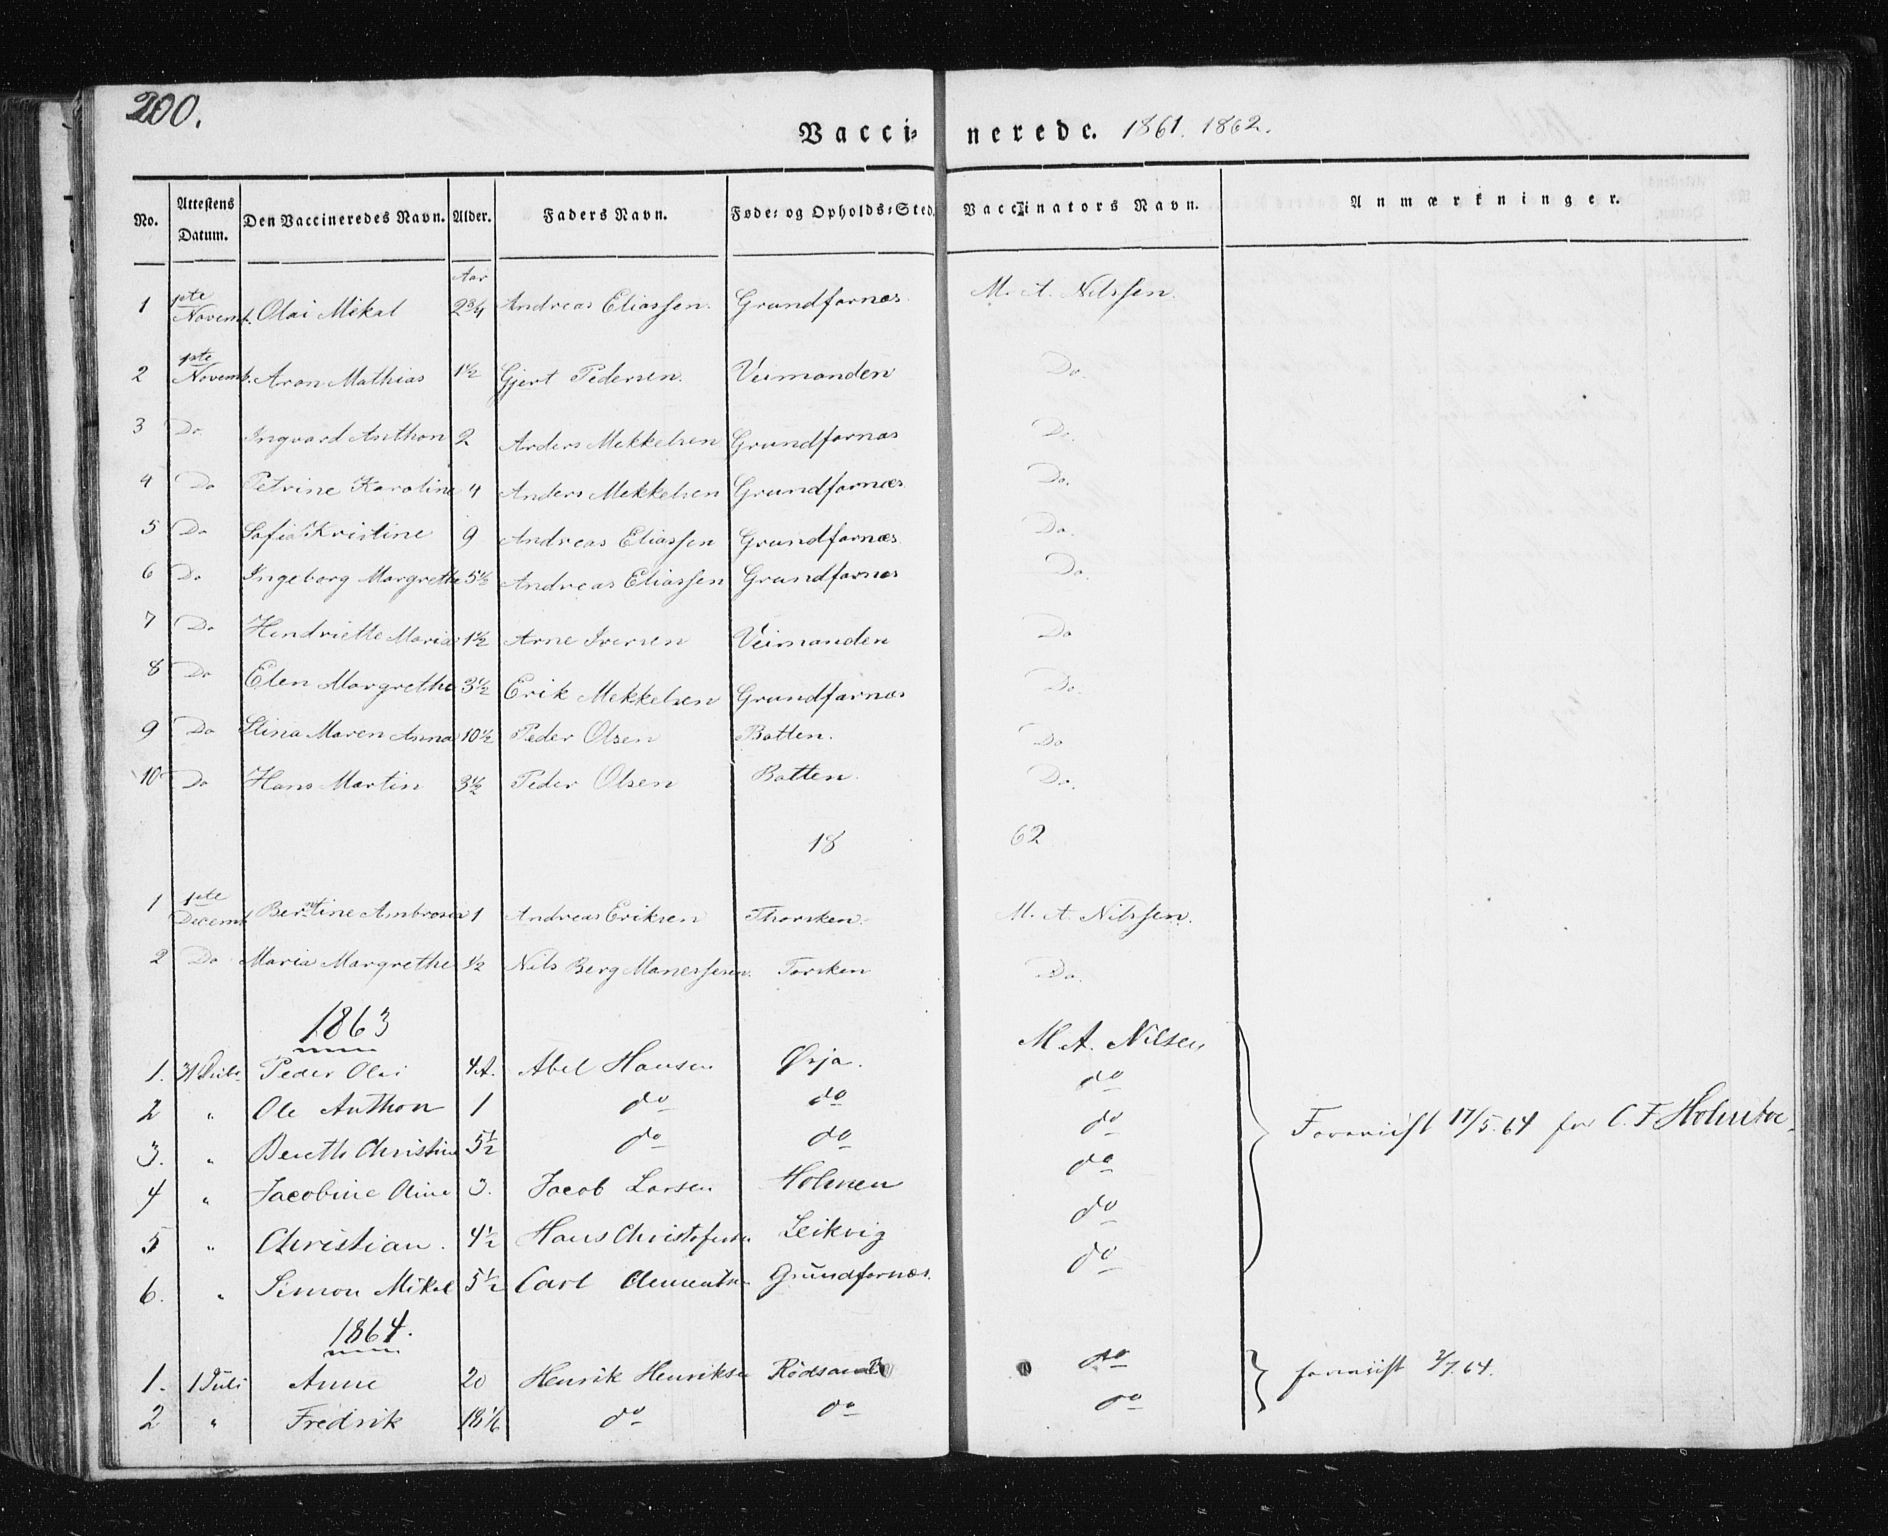 200.
Vaccinerede. 1861. 1862.
No. Attestens Datum. Den Vaccineredes Navn. Alder. Faders Navn. Føde- og Opholds-Sted. Vaccinators Navn. Anmærkninger.
Aar
1 1ste Novemb. Olai Mikal 2 3/4 Andreas Eliassen. Grundfarnæs. M. A. Nilssen.
2 1ste Novemb. Aron Mathias 1 1/2 Gjert Pedersen. Veimanden Do.
3 Do. Ingvard Anthon 2 Anders Mekkelsen Grundfarnæs Do.
4 Do Petrine Karoline 4 Anders Mekkelsen Grundfarnæs. Do.
5 Do Sofia Kristine 9 Andreas Eliassen Grundfarnæs Do.
6 Do Ingeborg Margrethe 5 1/2 Andreas Eliassen Grundfarnes Do.
7 Do Hendriette Maria 1 1/2 Arne Iversen Veimanden Do
8 Do Elen Margrethe 3 1/2 Erik Mekkelsen Grundfarnæs Do.
9 Do Stina Maren Anna 10 1/2 Peder Olsen Batten. Do
10 Do Hans Martin 3 1/2 Peder Olsen Batten. Do.
18 62
1 1ste Decemb Berntine Ambrosia 1 Andreas Eriksen Thorsken. M. A. Nilssen.
2 Do Maria Margrethe 1/2 Nils Berg Manessesen. Torsken Do.
1863
1. 31 Juli Peder Olai 4 A. Abel Hansen Ørja. M. A. Nilsen
2 " Ole Anthon 1 do do do
3. " Bereth Christine 5 1/2 do do do
Foreviist 17/5.64 for C. F. Holmboe.
4 " Jacobine Oline 3. Jacob Larsen Holmen do
5 " Christian. 4 1/2 Hans Christofersen Leikvig do
6. " Simon Mikal 5 1/2 Carl Clementsen Grundfarnæs. do
1864.
1. 1 Juli Anne 20 Henrik Henriksen Rödsand do foreviist 2/7.64.
2 " Fredrik 18 1/6 do do do